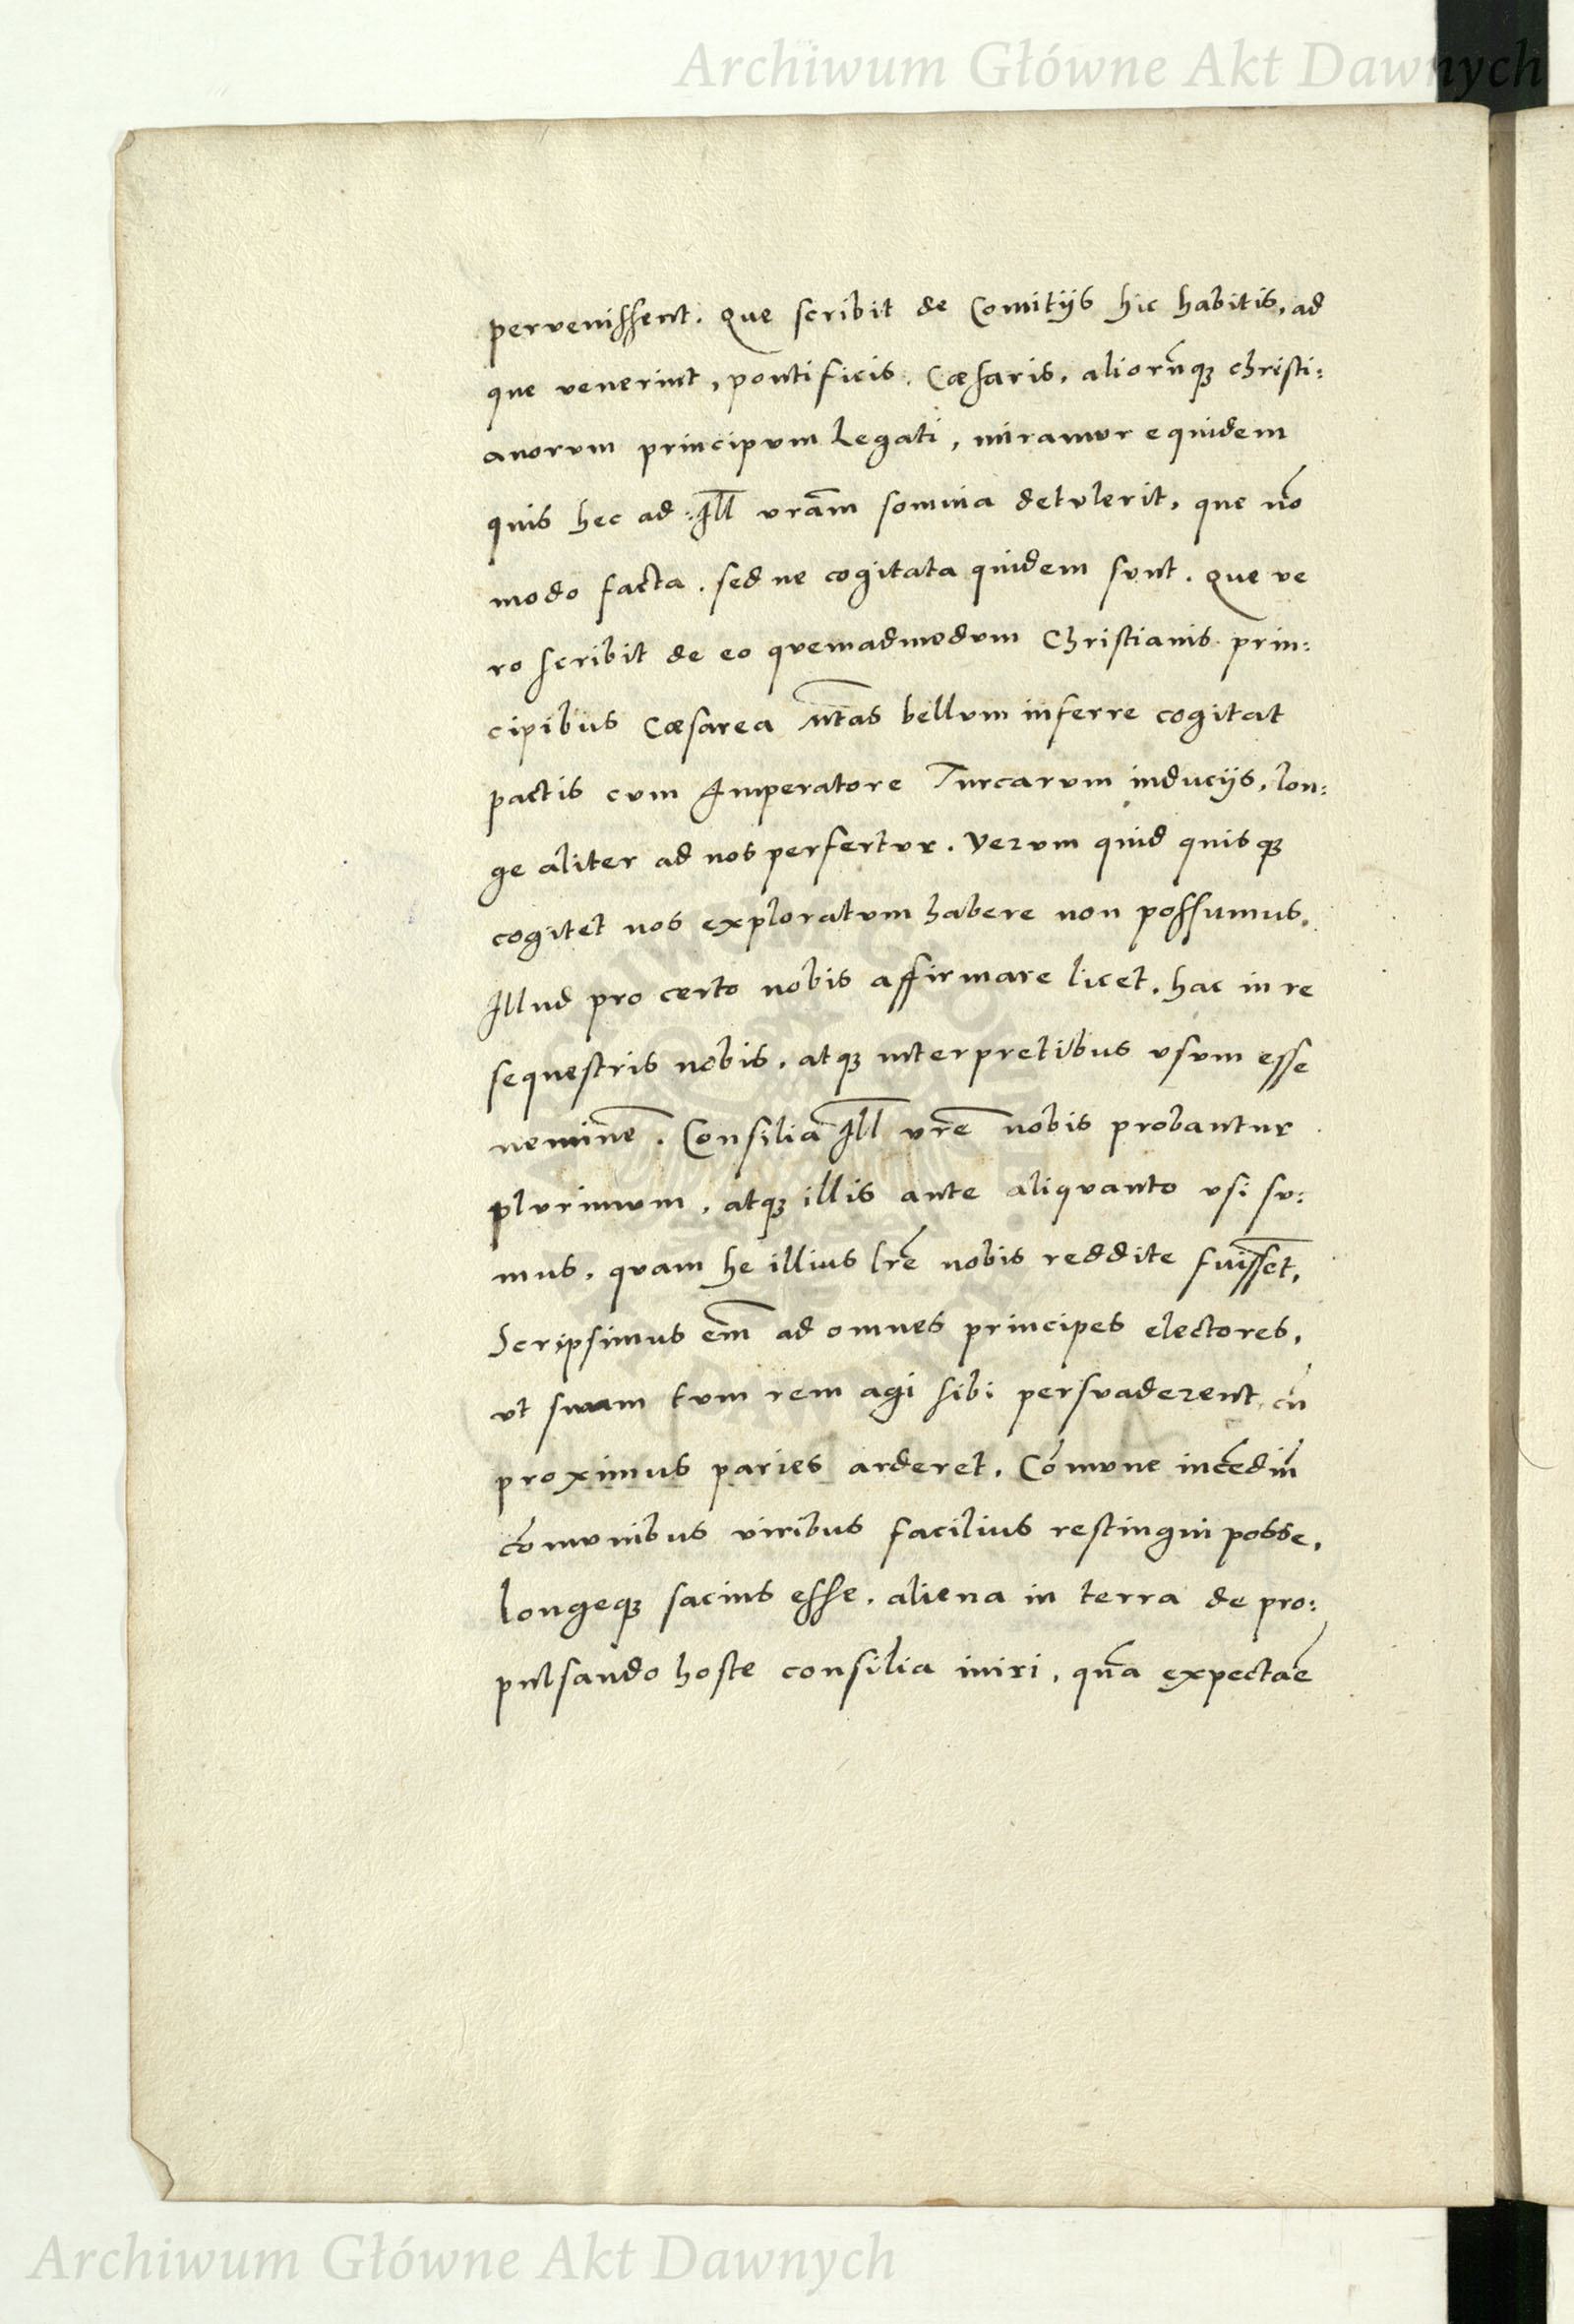 Archiwum Główne Akt Dawnych
pervenissent. Que scribit de Comitijs hic habitis, ad
que venerint, pontificis, Cæsaris, aliorūq3 christi:
anorum principum Legati, miramur equidem
quis hec ad Ill̅ vrām somnia detulerit, que nō
modo facta, sed ne cogitata quidem sunt. Que ve
ro scribit de eo quemadmodum Christianis prin:
cipibus Cæsarea Mtas bellum inferre cogitat
pactis cum Imperatore Turcarum inducijs, lon:
ge aliter ad nos perfertur. Verum quid quisq3
cogitet nos exploratum habere non possumus.
Illud pro certo nobis affirmare licet, hac in re
sequestris nobis, atq3 interpretibus usum esse
neminē. Consilia Ill̅ vrē nobis probantur
plurimum, atq3 illis ante aliquanto usi su:
mus, quam he illius lrē nobis reddite fuissēt,
Scripsimus em̄ ad omnes principes electores,
ut suam tum rem agi sibi persuaderent, cū
proximus paries arderet. Cōmune incēdiū
cōmunibus viribus facilius restingui posse,
longeq3 sacius esse, aliena in terra de pro:
pulsando hoste consilia iniri, qūa expectāe
Archiwum Główne Akt Dawnych